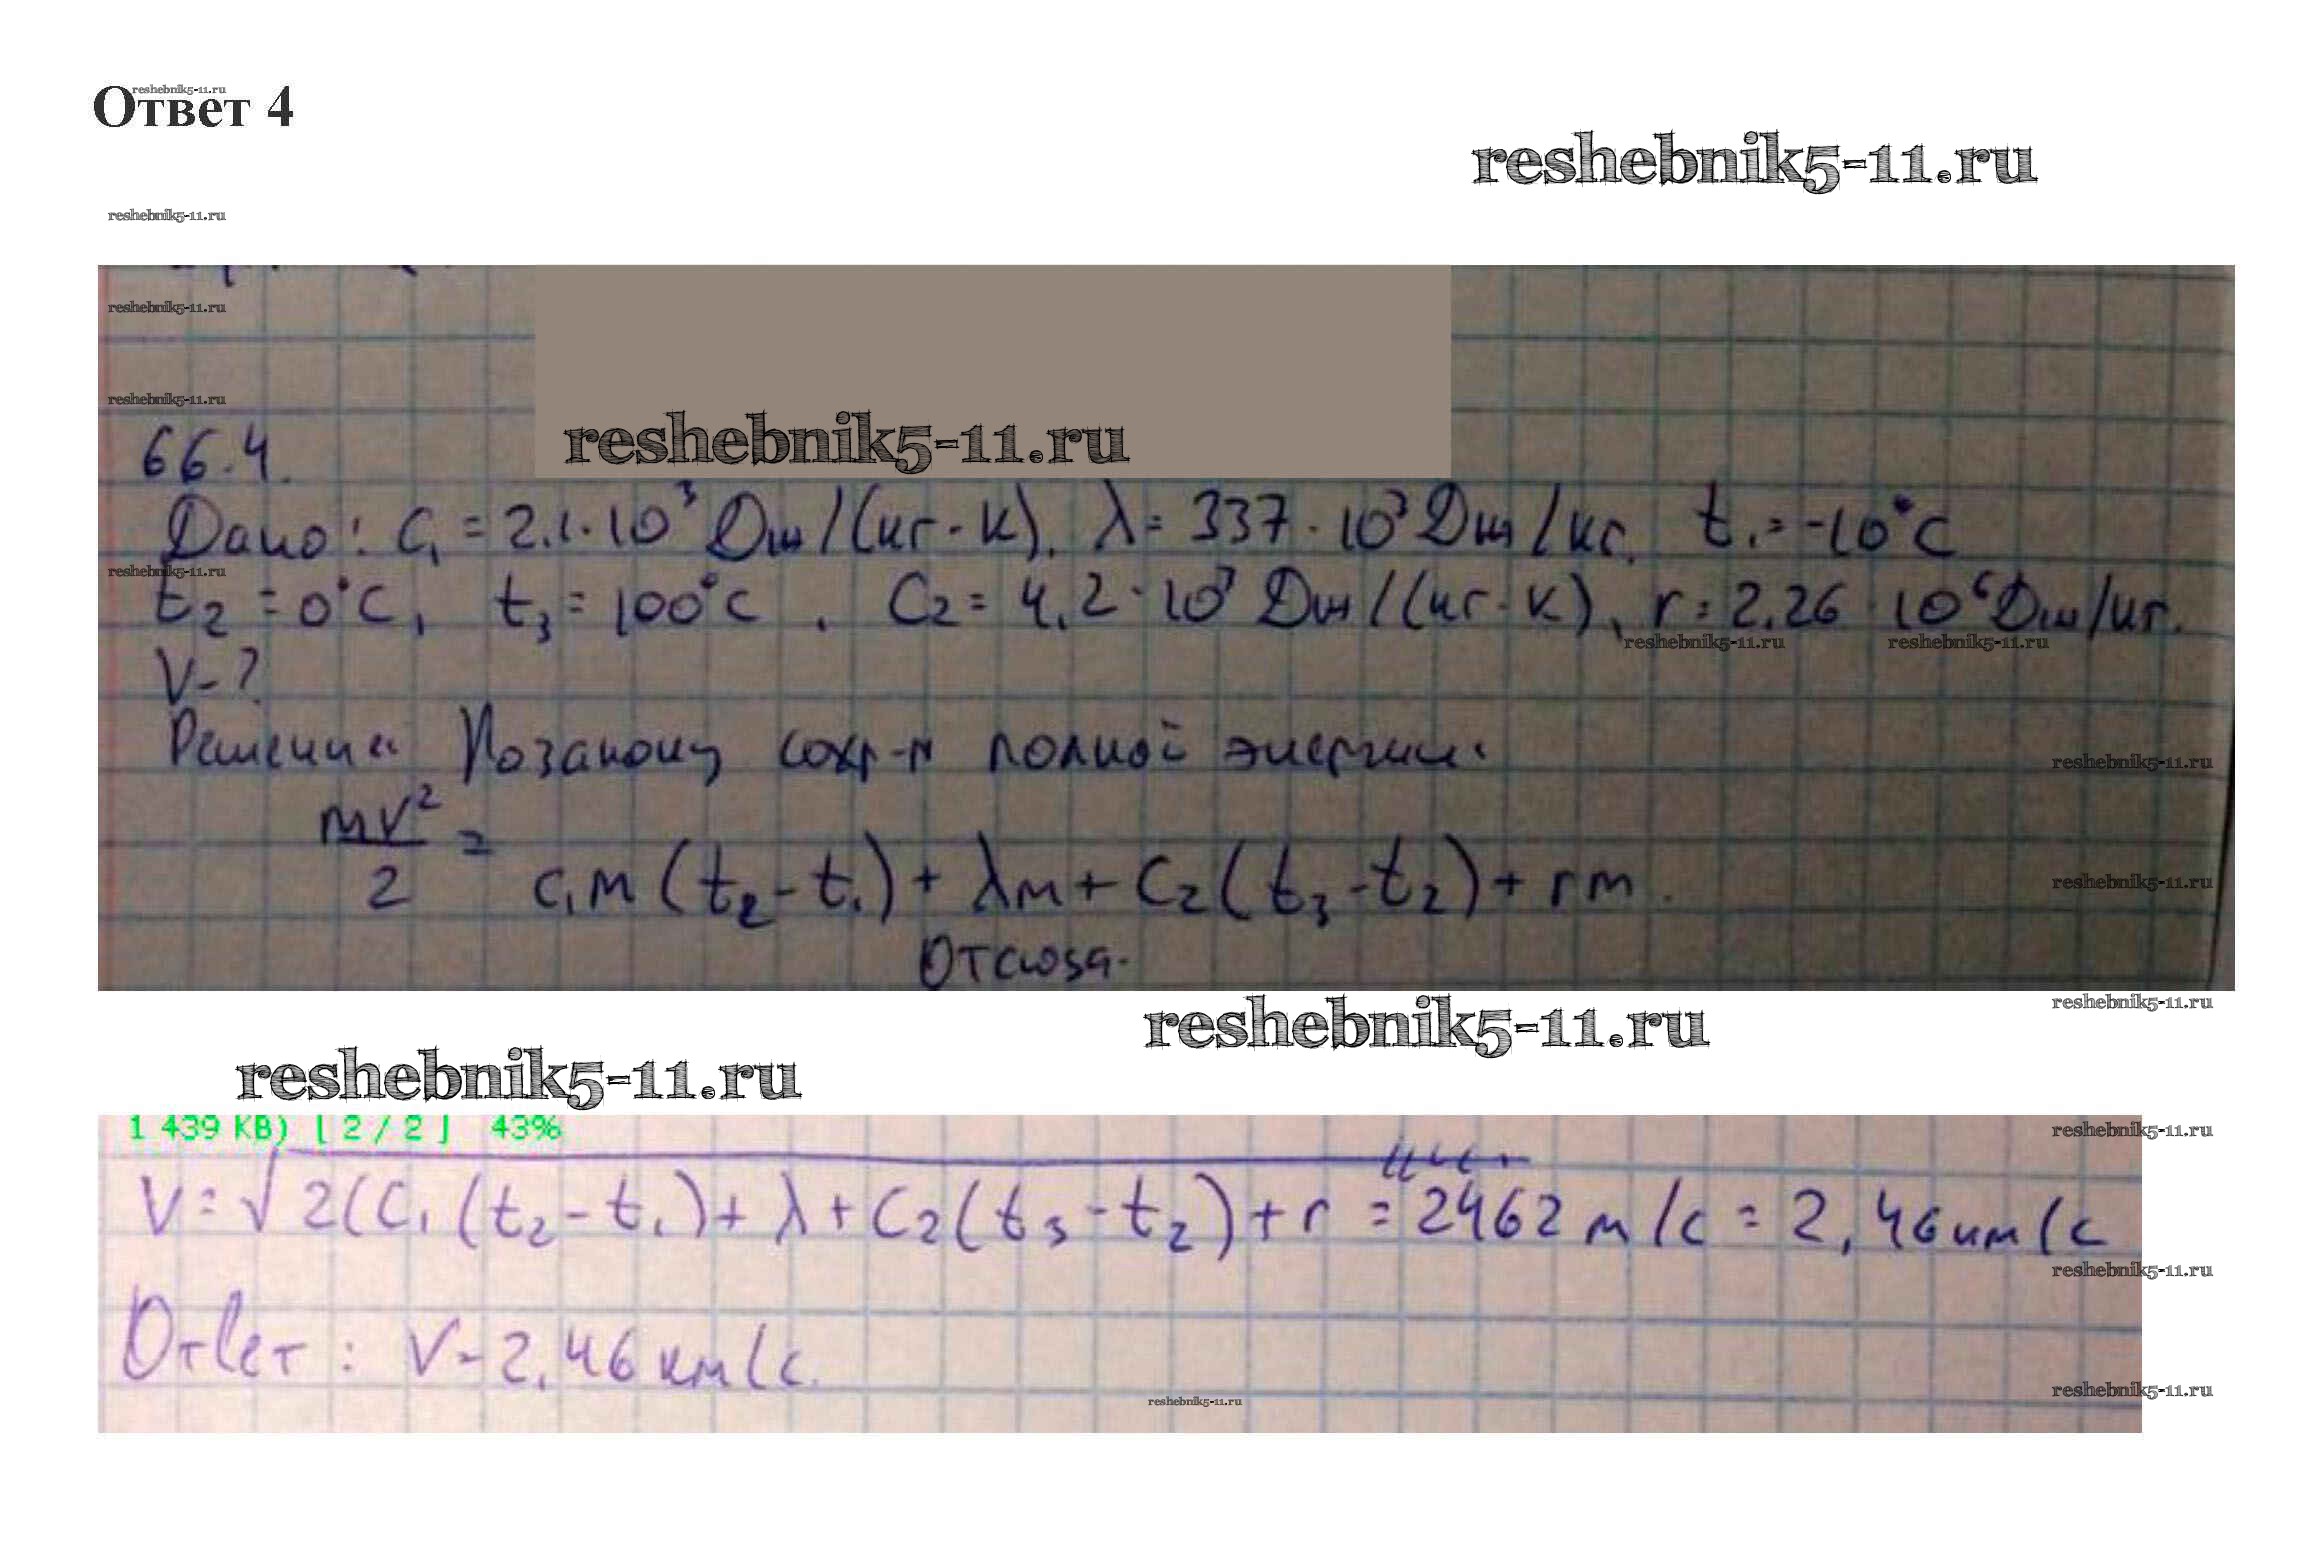 Ответ 4
reshebnik5-11.ru
reshebnik5-11.ru
reshebnik5-11.ru
reshebnik5-11.ru
reshebnik5-11.ru
reshebnik5-11.ru
66.4.
Дано: C₁ = 2.1·10³ Дж/(кг·К), λ = 337·10³ Дж/кг. t₁ = -10°C
reshebnik5-11.ru
t₂ = 0°C, t₃ = 100°C, C₂ = 4,2·10³ Дж/(кг·К), r = 2,26·10⁶ Дж/кг.
reshebnik5-11.ru reshebnik5-11.ru
V-?
Решение: По закону сохр-я полной энергии:
reshebnik5-11.ru
mv²/2 = c₁m(t₂-t₁) + λm + C₂(t₃-t₂) + rm.
reshebnik5-11.ru
Отсюда.
reshebnik5-11.ru
reshebnik5-11.ru
reshebnik5-11.ru
1 439 KB) [ 2 / 2 ] 43%
reshebnik5-11.ru
V = √2(C₁(t₂-t₁) + λ + C₂(t₃-t₂) + r = 2462 м/с = 2,46 км/с
reshebnik5-11.ru
Ответ: V - 2,46 км/с.
reshebnik5-11.ru
reshebnik5-11.ru